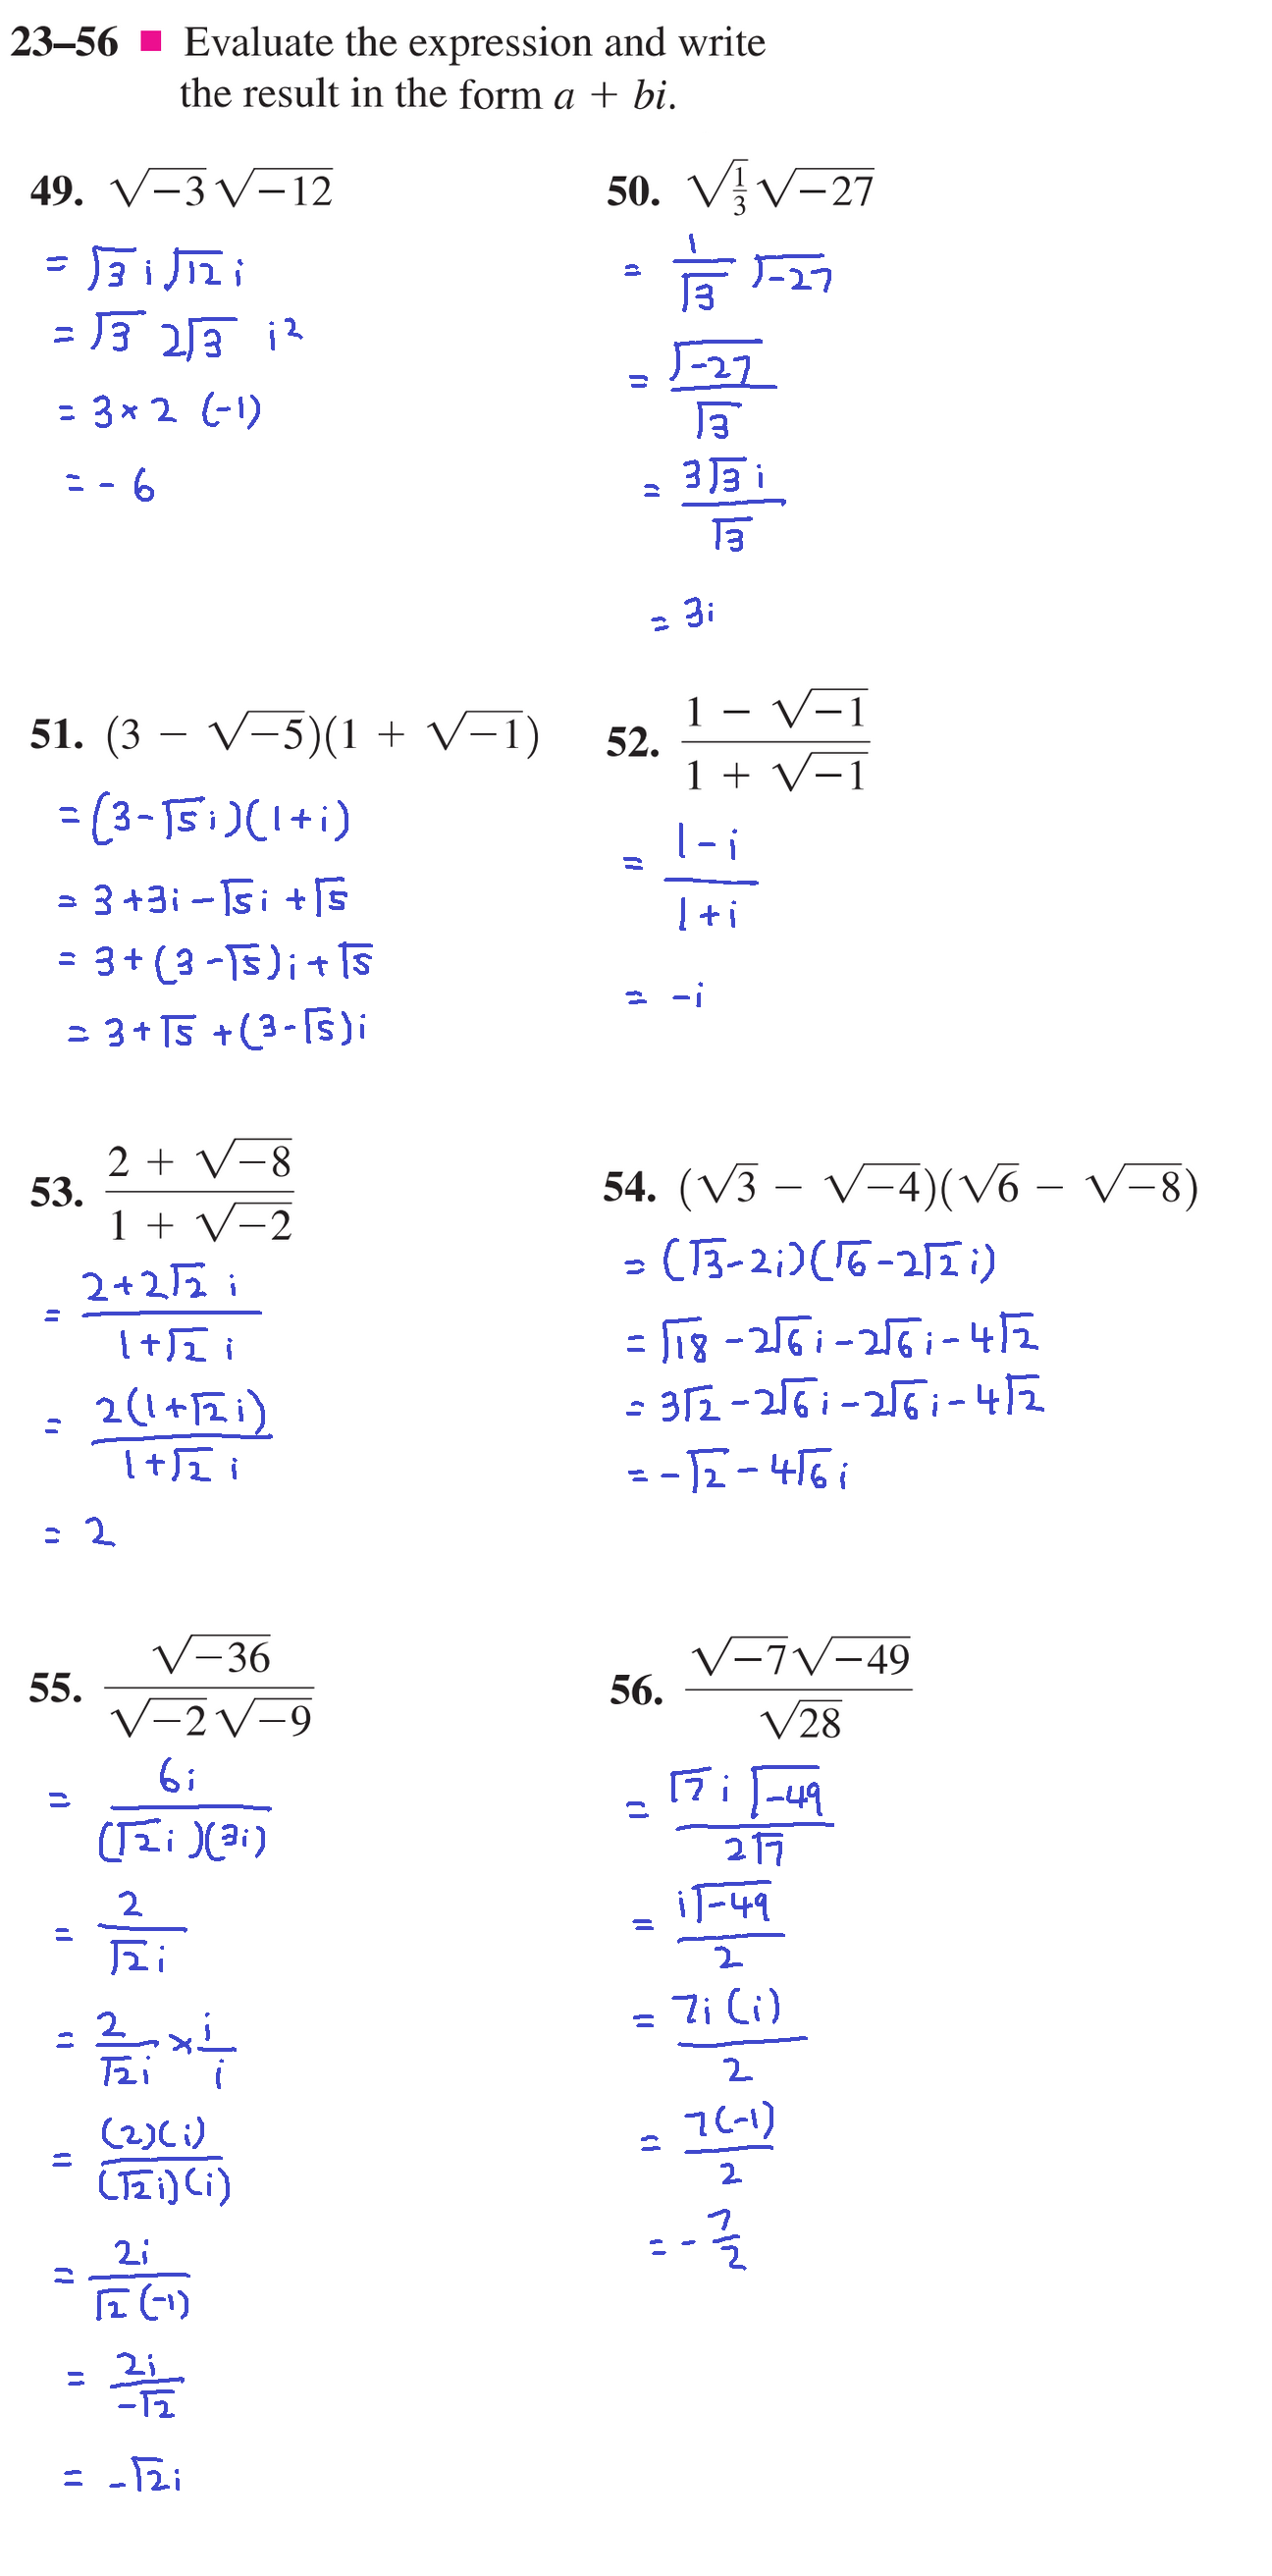 23–56 ■ Evaluate the expression and write
the result in the form a + bi.
49. √−3 √−12
= √3 i √12 i
= √3 2√3 i²
= 3 × 2 (-1)
= - 6
50. √(1/3) √−27
= 1/√3 √-27
= √-27/√3
= 3√3 i/√3
= 3i
51. (3 − √−5)(1 + √−1)
= (3-√5 i)(1+i)
= 3+3i-√5 i+√5
= 3+(3-√5)i+√5
= 3+√5 +(3-√5)i
52. (1 − √−1)/(1 + √−1)
= (1-i)/(1+i)
= -i
53. (2 + √−8)/(1 + √−2)
= (2+2√2 i)/(1+√2 i)
= 2(1+√2 i)/(1+√2 i)
= 2
54. (√3 − √−4)(√6 − √−8)
= (√3-2i)(√6-2√2 i)
= √18 -2√6 i-2√6 i-4√2
= 3√2-2√6 i-2√6 i-4√2
= -√2-4√6 i
55. √−36/(√−2 √−9)
= 6i/((√2 i)(3i))
= 2/(√2 i)
= 2/(√2 i) × i/i
= (2)(i)/((√2 i)(i))
= 2i/(√2 (-1))
= 2i/(-√2)
= -√2 i
56. (√−7 √−49)/√28
= (√7 i √-49)/(2√7)
= i√-49/2
= 7i(i)/2
= 7(-1)/2
= - 7/2